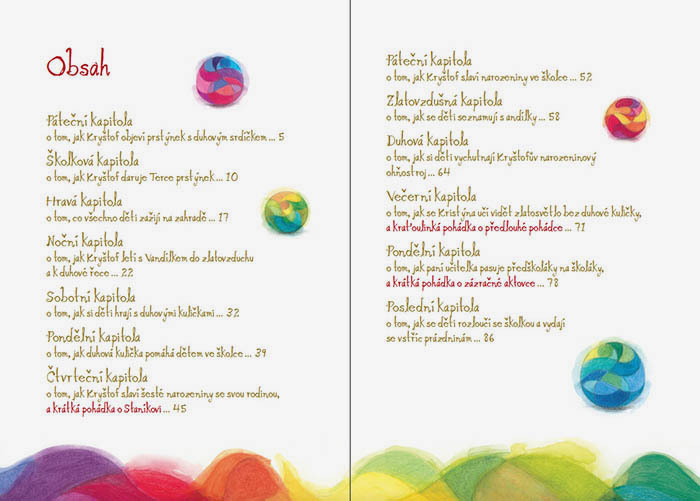 Obsah
Páteční kapitola
o tom, jak Kryštof objeví prstýnek s duhovým srdíčkem ... 5
Školková kapitola
o tom, jak Kryštof daruje Terce prstýnek ... 10
Hravá kapitola
o tom, co všechno děti zažijí na zahradě ... 17
Noční kapitola
o tom, jak Kryštof letí s Vandilkem do zlatovzduchu
a k duhové řece ... 22
Sobotní kapitola
o tom, jak si děti hrají s duhovými kuličkami ... 32
Pondělní kapitola
o tom, jak duhová kulička pomáhá dětem ve školce ... 39
Čtvrteční kapitola
o tom, jak Kryštof slaví šesté narozeniny se svou rodinou,
a krátká pohádka o Staníkovi ... 45
Páteční kapitola
o tom, jak Kryštof slaví narozeniny ve školce ... 52
Zlatovzdušná kapitola
o tom, jak se děti seznamují s andílky ... 58
Duhová kapitola
o tom, jak si děti vychutnají Kryštofův narozeninový
ohňostroj ... 64
Večerní kapitola
o tom, jak se Kristýna učí vidět zlatosvětlo bez duhové kuličky,
a kraťoulinká pohádka o předlouhé pohádce ... 71
Pondělní kapitola
o tom, jak paní učitelka pasuje předškoláky na školáky,
a krátká pohádka o zázračné aktovce ... 78
Poslední kapitola
o tom, jak se děti rozloučí se školkou a vydají
se vstříc prázdninám ... 86